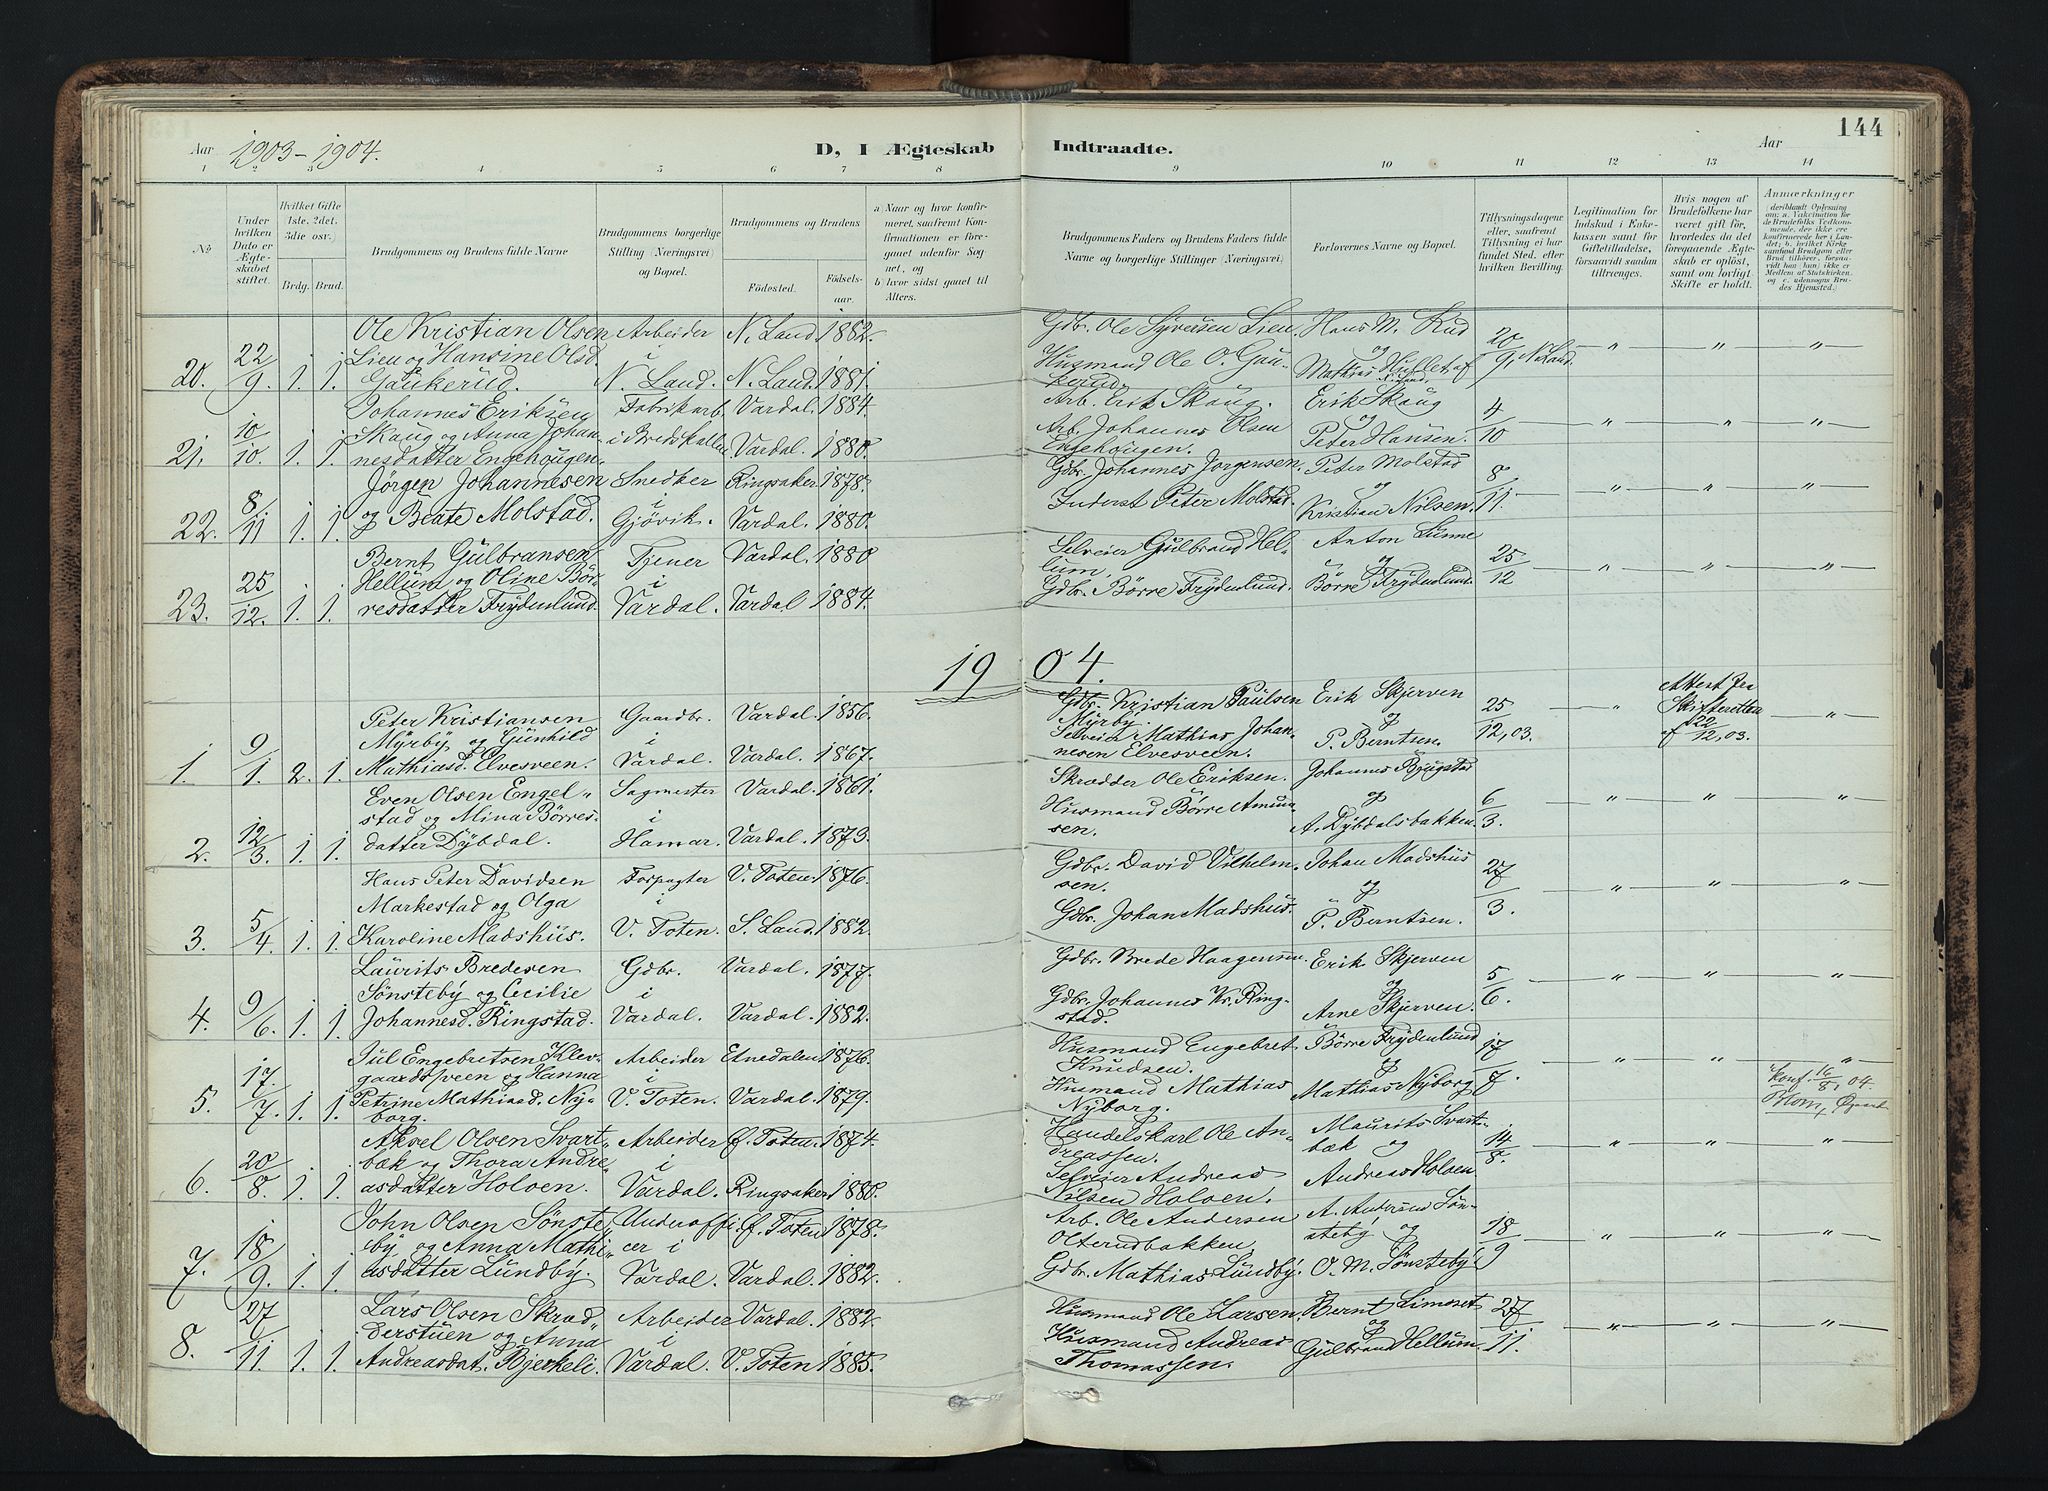 144
Aar 1903-1904. D, I Ægteskab Indtraadte. Aar
1 2 3 4 5 6 7 8 9 10 11 12 13 14
№
Under hvilken Dato er Ægteskabet stiftet.
Hvilket Gifte 1ste. 2det. 3die osv.
Brdg. Brud.
Brudgommens og Brudens fulde Navne
Brudgommens borgerlige Stilling (Næringsvei) og Bopæl.
Brudgommens og Brudens
Födested. Födselsaar.
a) Naar og hvor konfirmeret, saafremt Konfirmationen er foregaaet udenfor Sognet, og
b) hvor sidst gaaet til Alters.
Brudgommens Faders og Brudens Faders fulde Navne og borgerlige Stillinger (Næringsvei)
Forlovernes Navne og Bopæl.
Tillysningsdagene eller, saafremt Tillysning ei har fundet Sted, efter hvilken Bevilling.
Legitimation for Indskud i Enkekassen samt for Giftetilladelse, forsaavidt saadan tiltrænges.
Hvis nogen af Brudefolkene har været gift för, hvorledes da det foregaaende Ægteskab er oplöst, samt om lovligt Skifte er holdt.
Anmærkninger (deriblandt Oplysning om: a. Vakcination for de Brudefolks Vedkommende, der ikke ere konfirmerede her i Landet; b. hvilket Kirkesamfund Brudgom eller Brud tilhörer, forsaavidt han (hun) ikke er Medlem af Statskirken, og c. udensogns Brudes Hjemsted.)
20. 22/9. 1. 1. Ole Kristian Olsen Lien og Hansine Olsd. Gaukerud. Arbeider i N. Land. N. Land 1882. N. Land. 1881. Gdbr. Ole Syversen Lien. Husmand Ole O. Gaukerud. Hans M. Rud og Mathias Hullet af N. Land. 20/9, N. Land. " " "
21. 10/10. 1. 1. Johannes Eriksen Skaug og Anna Johannesdatter Engehougen. Fabrikarb. i Bredskallen Vardal. 1884. Vardal. 1880. Arb. Erik Skaug. Arb. Johannes Olsen Engehougen. Erik Skaug og Peter Hansen. 4/10 " " "
22. 8/11 1. 1. Jörgen Johannesen og Beate Molstad. Snedker i Gjövik. Ringsaker 1878. Vardal. 1880. Gdbr. Johannes Jorgensen. Inderst Peter Molstad. Peter Molstad og Kristian Nilsen. 8/11. " " "
23. 25/12. 1. 1. Bernt Gulbransen Hellum og Oline Börresdatter Frydenlund. Tjener i Vardal. Vardal. 1880 Vardal 1884. Selveier Gulbrand Hellum. Gdbr. Börre Frydenlund. Anton Lunne og Börre Frydenlund. 25/12 " " "
1904.
1. 9/1. 2. 1. Peter Kristiansen Myrby og Gunhild Mathiasd. Elvesveen. Gaardbr. i Vardal. Vardal. 1856. Vardal. 1867. Gdbr. Kristian Paulsen Myrby. Selveier Mathias Johannesen Elvesveen. Erik Skjerven og P. Berntsen. 25/12, 03. " Attest fra Skifteretten af 22/12, 03. "
2. 12/3. 1. 1. Even Olsen Engelstad og Mina Börresdatter Dybdal. Sagmester i Hamar. Vardal. 1861. Vardal. 1873. Skrædder Ole Eriksen. Husmand Börre Amundsen. Johannes Bjugstad og A. Dybdalsbakken. 6/3. " " "
3. 5/4. 1. 1. Hans Peter Davidsen Markestad og Olga Karoline Madshus. Forpagter i V. Toten. V. Toten. 1876. S. Land. 1882. Gdbr. David Vilhelmsen. Gdbr. Johan Madshus. Johan Madshus og P. Berntsen. 27/3. " " "
4. 9/6. 1. 1. Laurits Bredesen Sønsteby og Cecilie Johannesd. Ringstad. Gdbr. i Vardal. Vardal. 1877. Vardal. 1882. Gdbr. Brede Haagensen. Gdbr. Johannes Kr. Ringstad. Erik Skjerven og Arne Skjerven. 5/6. " " "
5. 17./7. 1. 1. Jul Engebretsen Klevgaardssveen og Hanna Petrine Mathiasd. Nyborg. Arbeider i V. Toten. Etnedalen 1876. Vardal 1879. Husmand Engebret Knudsen. Husmand Mathias Nyborg. Börre Frydenlund og Mathias Nyborg 17/7. " " " Konf. 16/8, 04.
6. 20/8. 1. 1. Aksel Olsen Svartbæk og Thora Andreasdatter Holoen. Arbeider i Vardal. Ø. Toten. 1874. Ringsaker 1880. Handelskarl Ole Andreassen. Selveier Andreas Nilsen Holoen. Maurits Svartbæk og Andreas Holoen 14/8. " " "
7. 18/9. 1. 1. John Olsen Sønsteby og Anna Mathiasdatter Lundby. Underofficer i Vardal. Ø. Toten 1878. Vardal. 1882. Arb. Ole Andersen Olterudbakken. Gdbr. Mathias Lundby. A. Andersen Sønsteby og O. M. Sønsteby. 18/9 " " "
8. 27/11. 1. 1. Lars Olsen Skrædderstuen og Anna Andreasdat. Bjerkeli. Arbeider i Vardal. Vardal. 1882. V. Toten 1885. Husmand Ole Larsen. Husmand Andreas Thomassen. Bernt Limoset og Gulbrand Hellum. 27/11. " " "